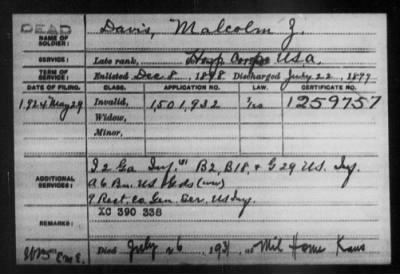 DEAD
NAME OF SOLDIER: Davis, Malcolm Z.
SERVICE: Late rank, Hosp Corps U.S.A.
TERM OF SERVICE: Enlisted Dec 8, 1898 Discharged July 22, 1899
DATE OF FILING. CLASS. APPLICATION NO. LAW. CERTIFICATE NO.
1924 May 29 Invalid, 1,501,932 1259757
Widow,
Minor,
ADDITIONAL SERVICES: I 2 Ga Inf. B2, B18, & G 29 U.S. Inf.
A 6 Bn. U.S. Gds (ww)
9 Rect. Co. Gen. Ser. US Inf.
REMARKS: XC 390 338
Died July 26, 193 at Mil Home Kans